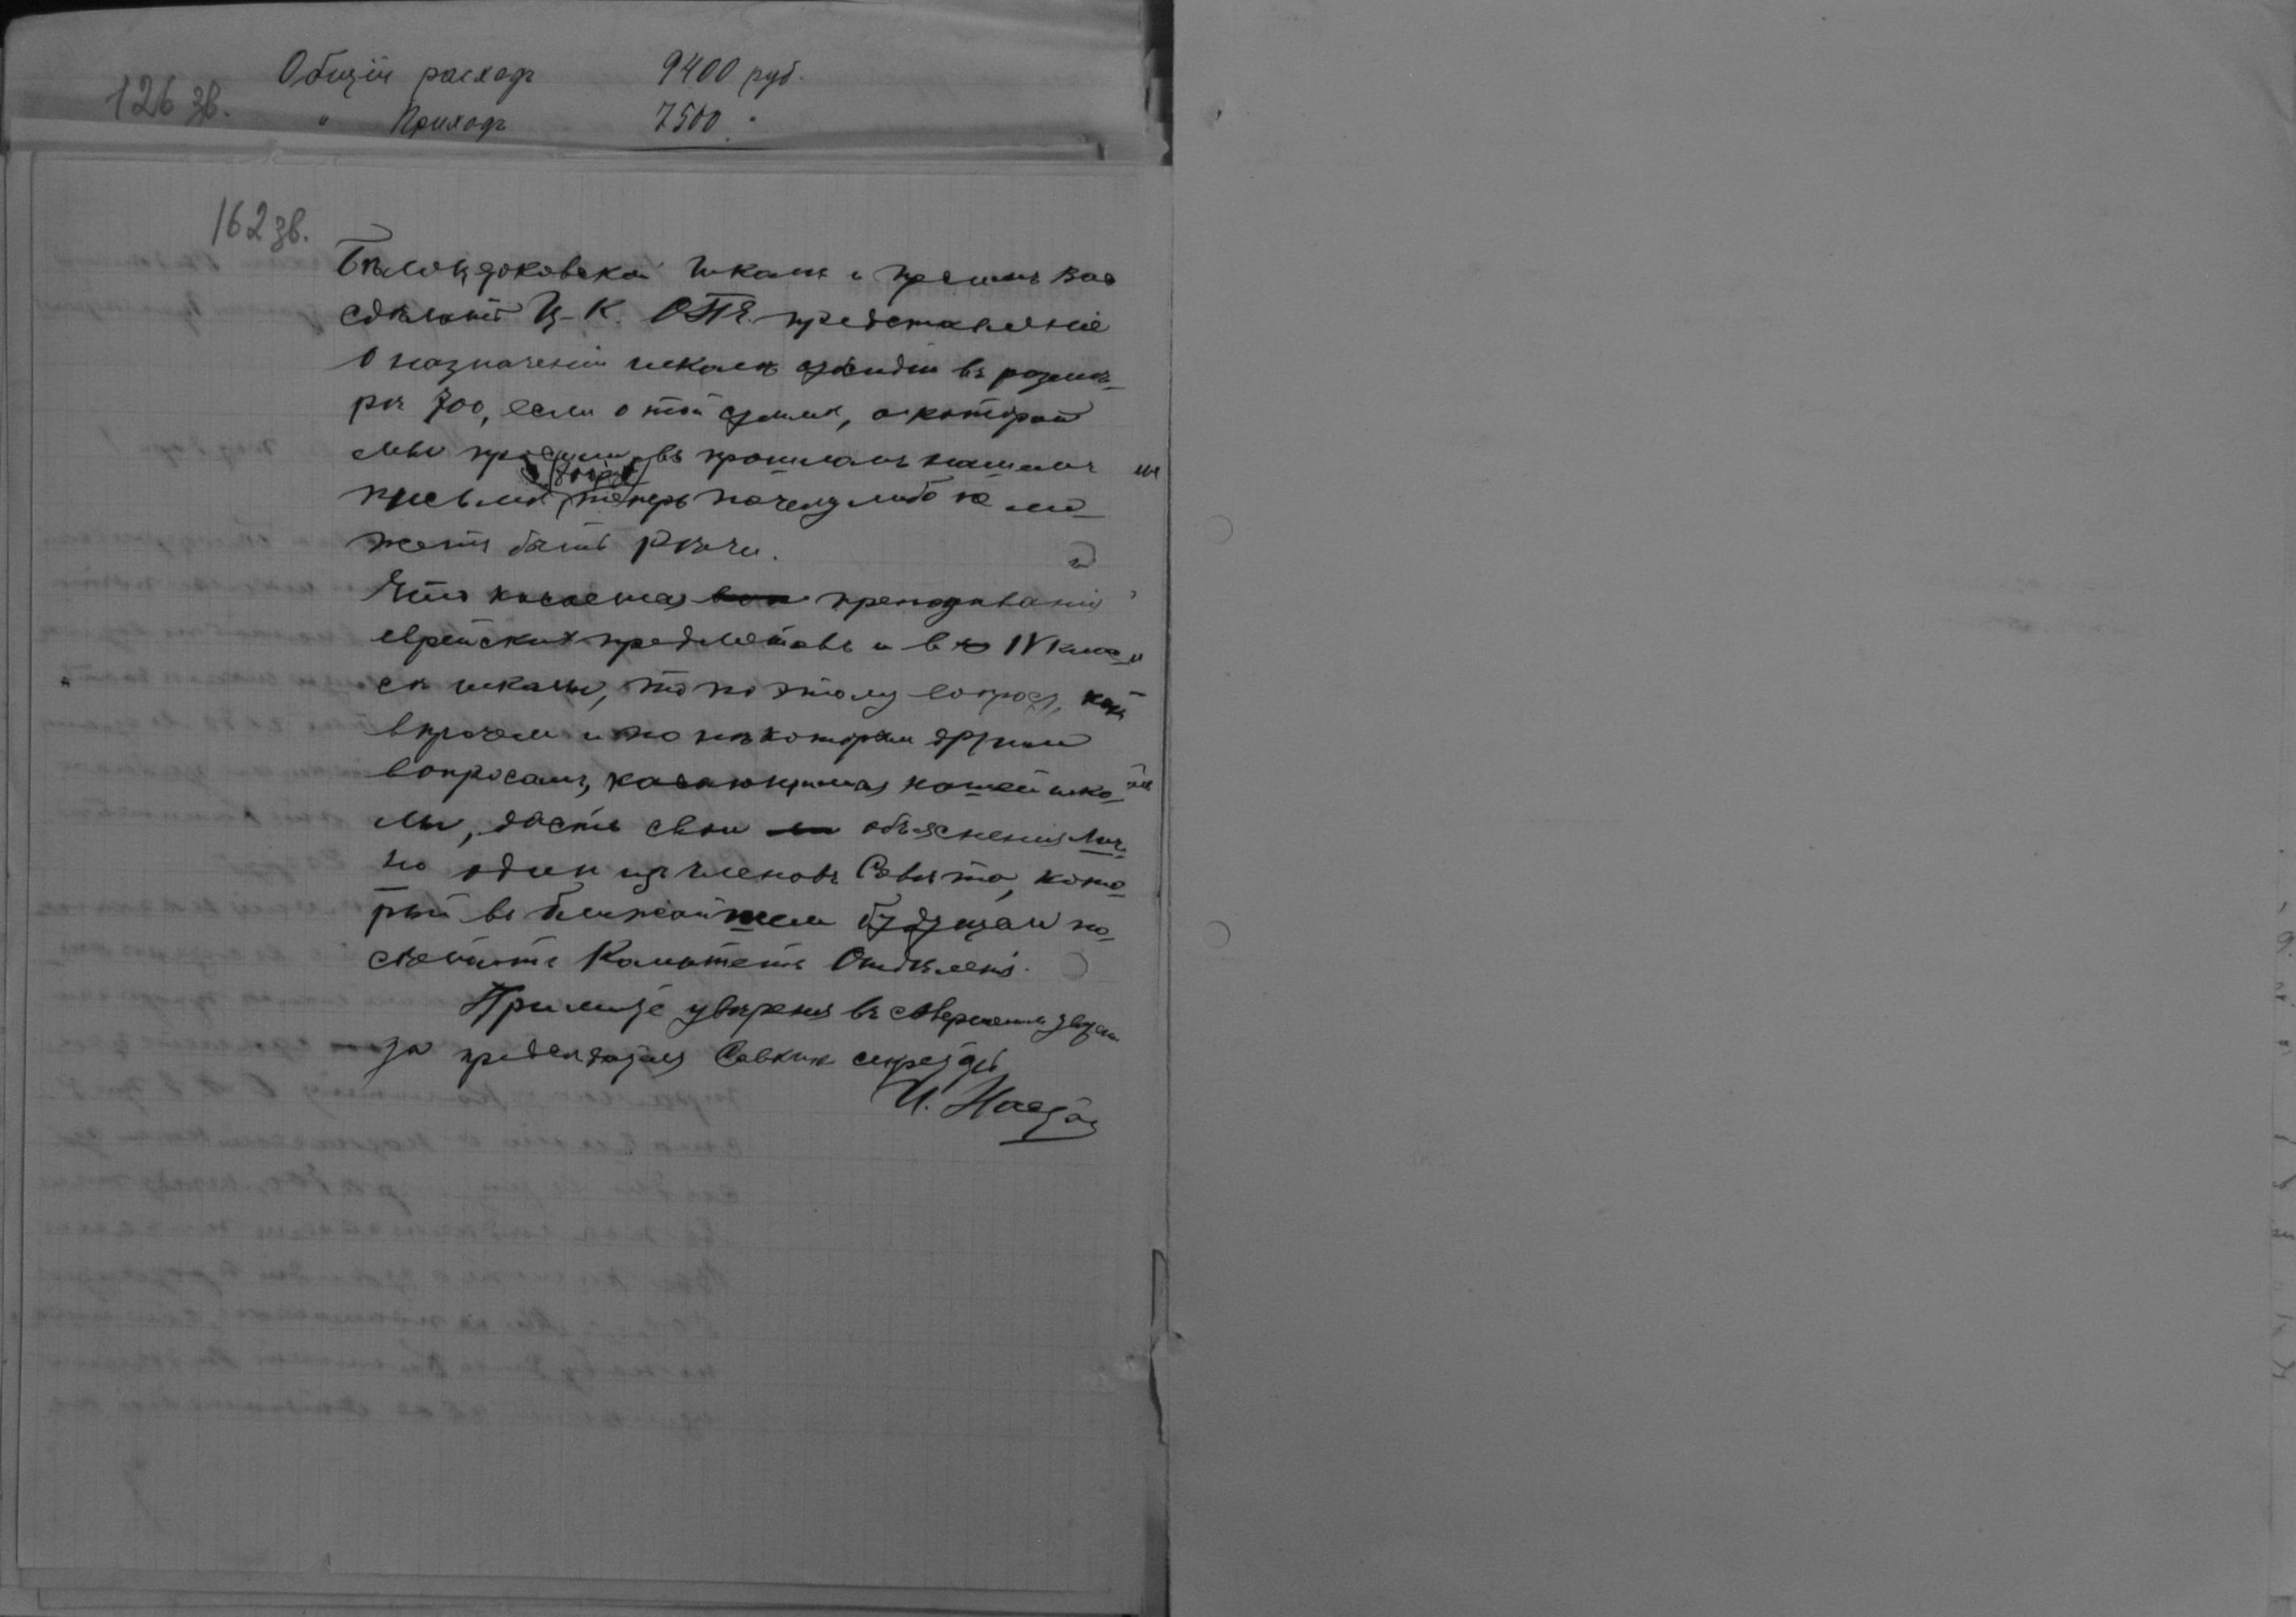 126 зв.
Общій расходъ 9400 руб.
" Приходъ 7500 "
162 зв.
школѣ и просимъ Вас
сдѣлать Ц. К. ОПЕ. представленіе
о назначеніи школѣ субсидіи въ размѣ-
рѣ 700, если о той суммѣ, о которой
мы просили въ прошломъ нашемъ
письмѣ теперь почему либо не мо-
жетъ быть рѣчи.
Что касается преподаванія
еврейских предметовъ и в IV клас-
сѣ школы, то по этому вопросу, какъ
впрочем и по нѣкоторым другим
вопросамъ, касающимся нашей шко-
лы, дастъ свои объясненія лич-
но один изъ членовъ Совѣта, кото-
рый въ ближайшем будущем по-
сѣтитъ Комитетъ Отдѣленія.
Примите увѣреніе въ совершенном уважен
За предсѣдателя Совѣта секретарь
И.